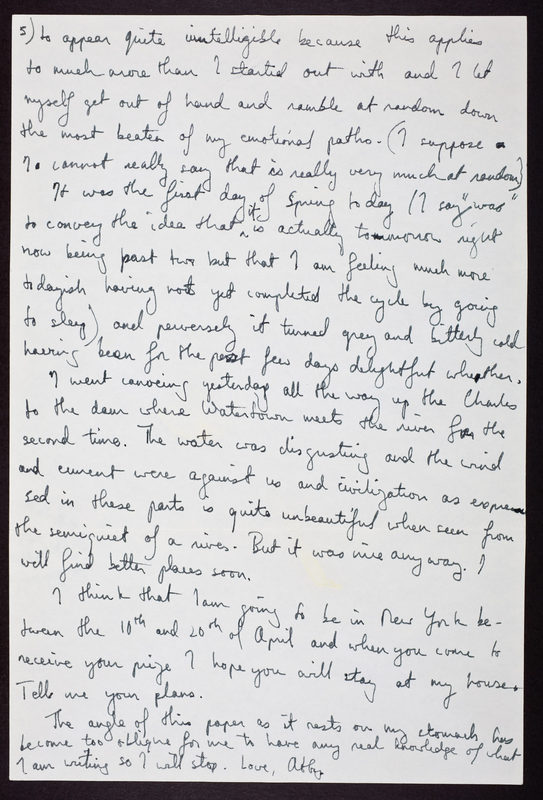 5) to appear quite unintelligible because this applies
to much more than I started out with and I let
myself get out of hand and ramble at random down
the most beaten of my emotional paths. (I suppose
I cannot really say that is really very much at random)
It was the first day of Spring today (I say "was"
to convey the idea that it is actually tommorrow right
now being past two but that I am feeling much more
todayish having not yet completed the cycle by going
to sleep) and perversely it turned grey and bitterly cold
having been for the past few days delightful wheather.
I went canoeing yesterday all the way up the Charles
to the dam where Watertown meets the river for the
second time. The water was disgusting and the wind
and current were against us and civilization as expres
sed in these parts is quite unbeautiful when seen from
the semiquiet of a river. But it was nice anyway. I
will find better places soon.
I think that I am going to be in New York be-
tween the 10th and 20th of April and when you come to
receive your prize I hope you will stay at my house.
Tell me your plans.
The angle of this paper as it rests on my stomach has
become too oblique for me to have any real knowledge of what
I am writing so I will stop. Love, Abby